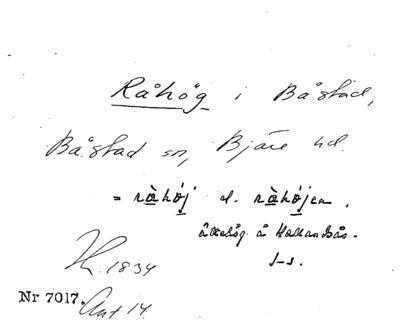 Råhög i Båstad,
Båstad sn, Bjäre hd.
= råhǿj d. råhǿjen.
ättehög å Hallandsås.
J-s.
H. 1834
Nr 7017. Ant 14.